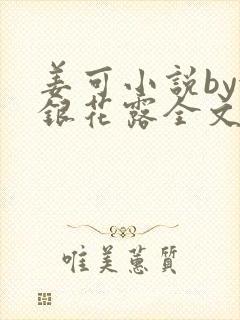 姜可小説by
銀花露全文
唯美蕙質